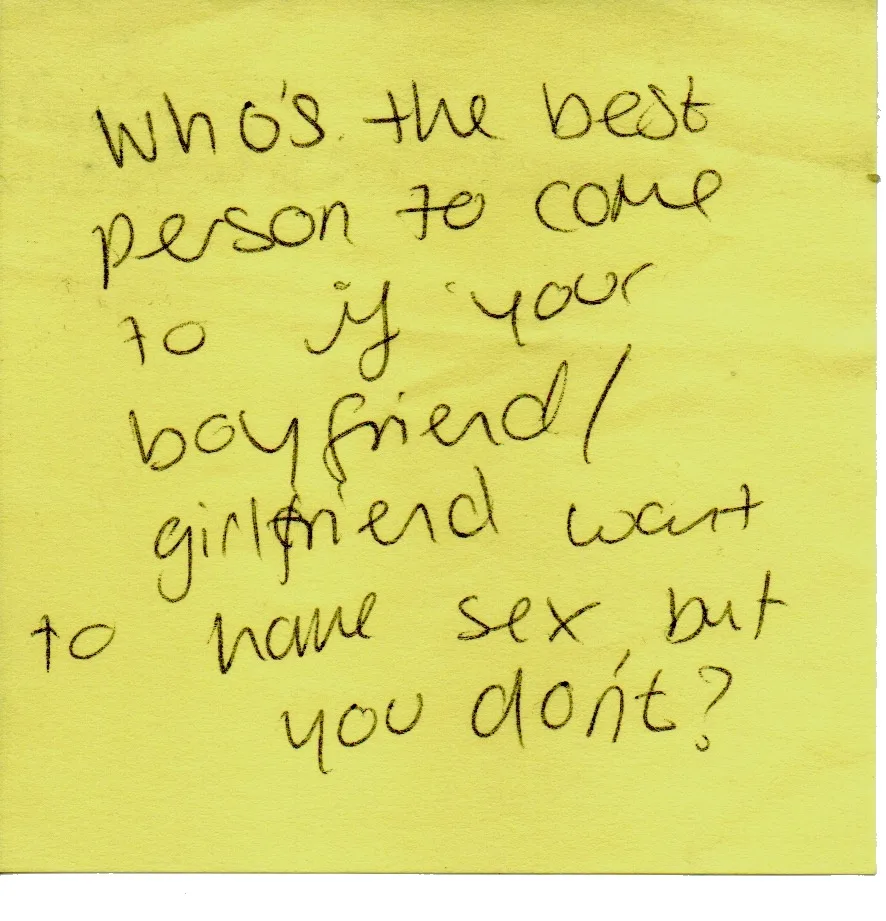 Who's the best
person to come
to if your
boyfriend/
girlfriend want
to have sex but
you don't?